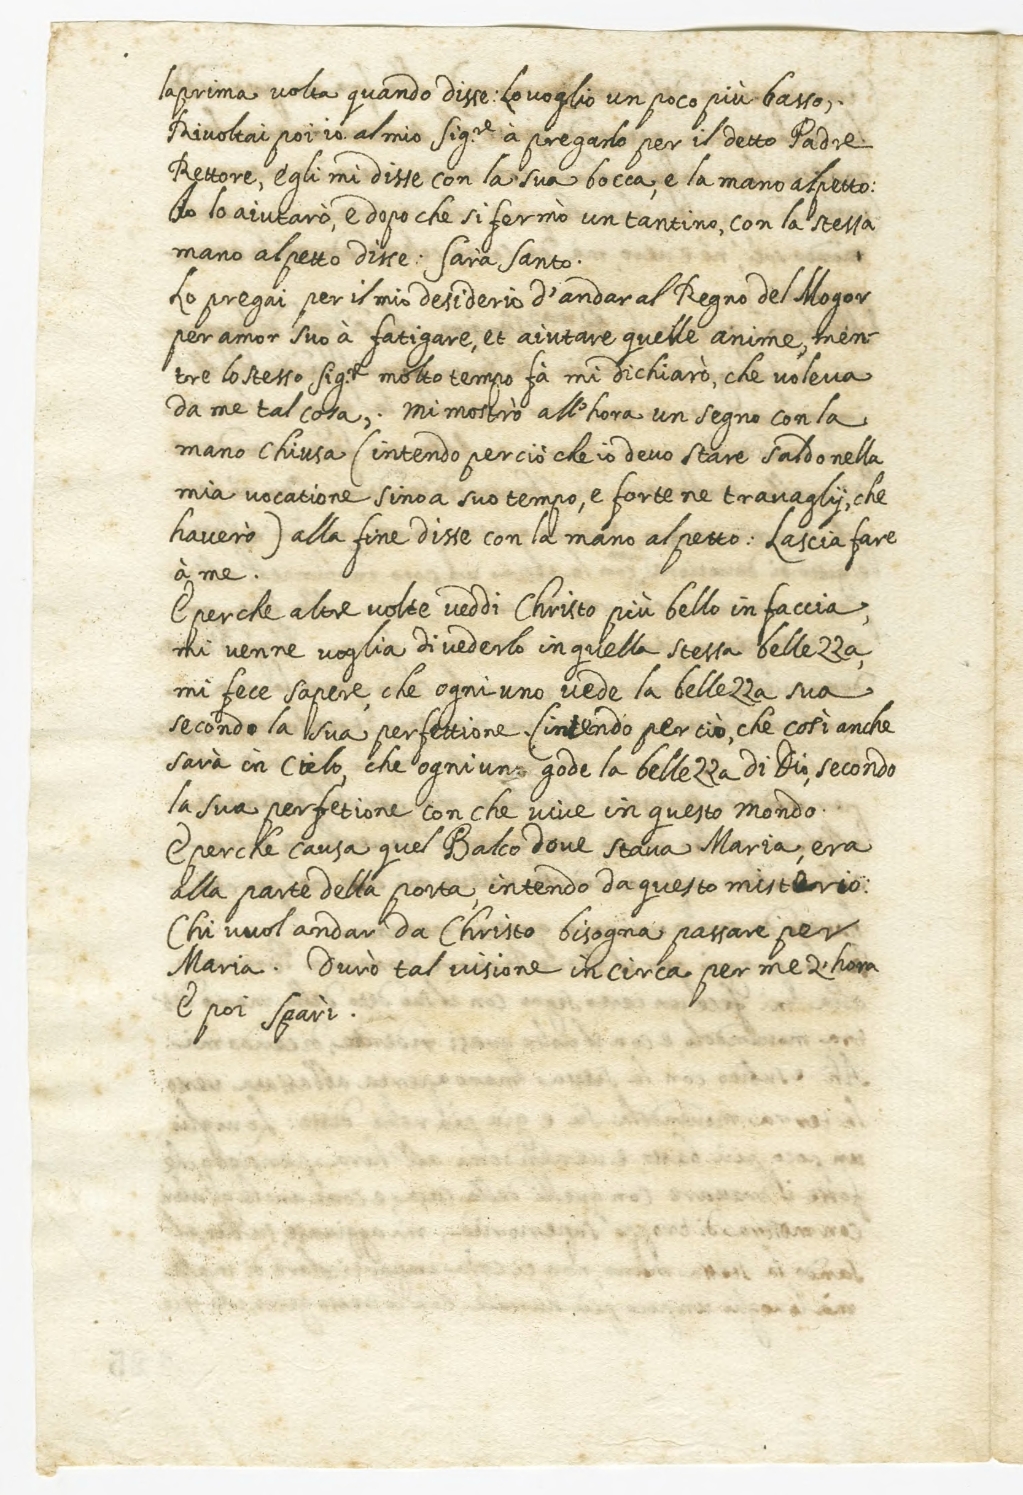 la prima volta quando disse: Lo voglio un poco più basso,.
Rivoltai poi io al mio Sig.re à pregarlo per il detto Padre
Rettore, egli mi disse con la sua bocca, e la mano al petto:
Io lo aiutarò, e dopo che si fermò un tantino, con la stessa
mano al petto disse: Sarà Santo.
Lo pregai per il mio desiderio d'andar al Regno del Mogor
per amor suo à fatigare, et aiutare quelle anime, men-
tre lo stesso Sig.re molto tempo fà mi dichiarò, che voleva
da me tal cosa,. mi mostrò all'hora un segno con la
mano chiusa (intendo perciò che io devo stare saldo nella
mia vocatione sino a suo tempo, e forte ne travaglij, che
haverò) alla fine disse con la mano al petto: Lascia fare
à me.
E perche altre volte veddi Christo più bello in faccia,
mi venne voglia di vederlo in quella stessa bellezza,
mi fece sapere, che ogni uno vede la bellezza sua
secondo la sua perfettione. (intendo per ciò, che così anche
sarà in Cielo, che ogni uno gode la bellezza di Dio, secondo
la sua perfetione con che vive in questo mondo.
E perche causa quel Balco dove stava Maria, era
alla parte della porta, intendo da questo misterio:
Chi vuol andar da Christo bisogna passare per
Maria. Durò tal visione in circa per me 2' hora
E poi sparì.